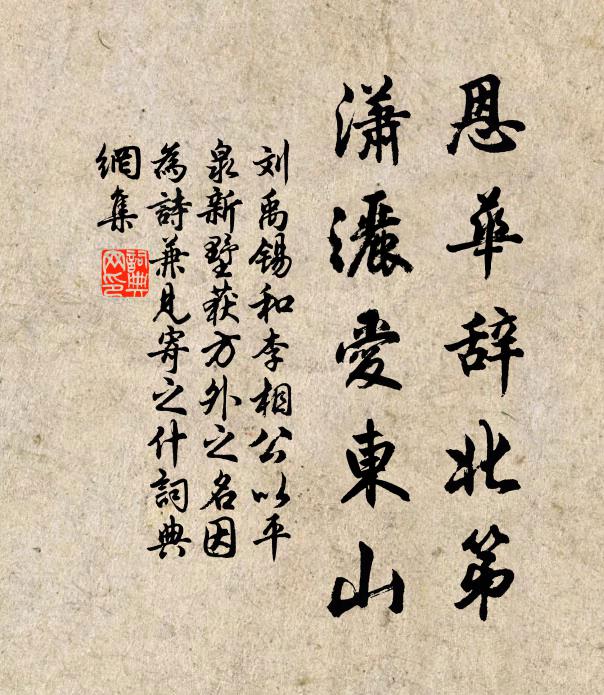 恩華辞北第
瀟灑愛東山
刘禹锡和李相公以平
泉新墅获方外之名因
為詩兼見寄之什詞典
網集
詞典
网印